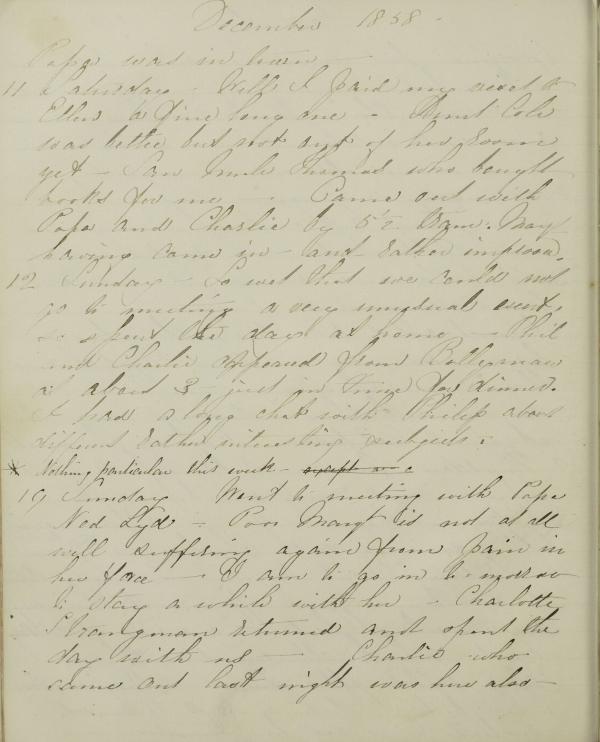 December 1858
Papa was in town —
11 Saturday - Will & I paid my visit to
Ellen a fine long one - Aunt Cole
was better but not out of her Room
yet - Saw Uncle Thomas who bought
books for me — Came out with
Papa and Charlie by 5½ Train. Mary
having come in - and rather improved.
12 Sunday - So wet that we could not
go to meeting a very unusual event,
so spent the day at home - Phil
and Charlie appeared from
at about 3 just in time for dinner.
I had a long chat with Philip about
different rather interesting subjects.
* Nothing particular this week -
19 Sunday Went to meeting with Papa
Ned Lyd - Poor Margt is not at all
well suffering again from pain in
her face — I am to go in to-morrow
to stay a while with her - Charlotte
Strangman returned and spent the
day with us — Charlie who
came out last night was here also -